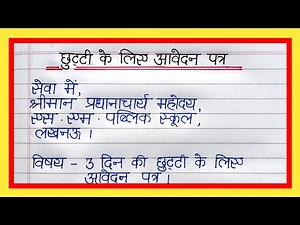 छुट्टी के लिए आवेदन पत्र
सेवा में,
श्रीमान प्रधानाचार्य महोदय,
एस. एम. पब्लिक स्कूल,
लखनऊ ।
विषय - 3 दिन की छुट्टी के लिए
आवेदन पत्र ।